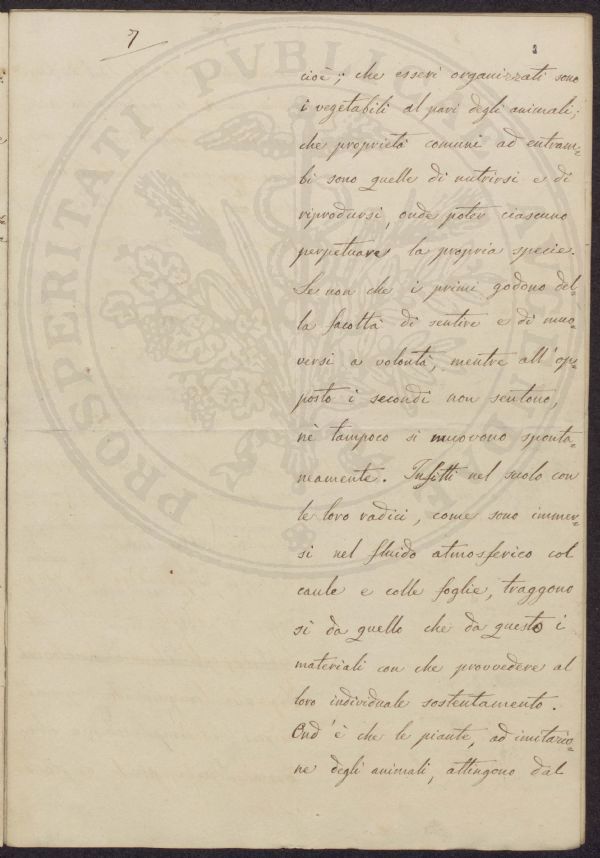 7
3
cioè; che esseri organizzati sono
i vegetabili al pari degli animali;
che proprietà comuni ad entram=
bi sono quelle di nutrirsi e di
riprodursi, onde poter ciascuno
perpetuare la propria specie.
Se non che i primi godono del=
la facoltà di sentire e di muo=
versi a volontà, mentre all'op=
posto i secondi non sentono,
nè tampoco si muovono sponta=
neamente. Infitti nel suolo con
le loro radici, come sono immer=
si nel fluido atmosferico col
caule e colle foglie, traggono
sì da quello che da questo i
materiali con che provvedere al
loro individuale sostentamento.
Ond'è che le piante, ad imitazio=
ne degli animali, attingono dal
PROSPERITATI PVBLICAE